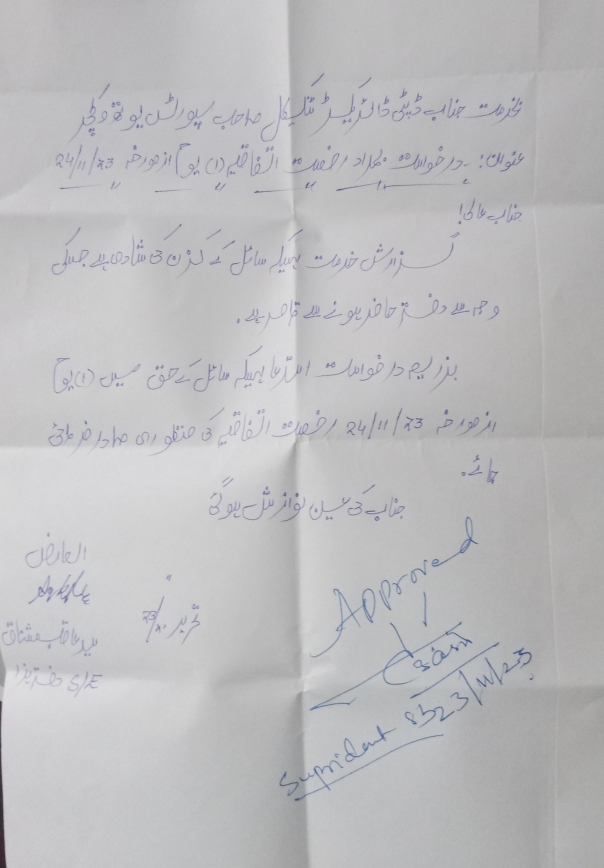 بخدمت جناب ڈپٹی ڈائریکٹر ٹیکنیکل صاحب سپورٹس یوتھ وکلچر
عنوان:۔ درخواست بمراد رخصت اتفاقیہ (1) یوم ازمورخہ 24/11/23
جناب عالی!
گزارش خدمت ہیکہ سائل کے کزن کی شادی ہے جسکی
وجہ سے دفتر حاضر ہونے سے قاصر ہے۔
بذریعہ درخواست استدعا ہیکہ سائل کے حق میں (1) یوم
ازمورخہ 24/11/23 رخصت اتفاقیہ کی منظوری صادر فرمائی
جائے۔
جناب کی عین نوازش ہوگی
العارض
تحریر
سید عاقب مشتاق
S/E دفتر ہذا
Approved
Supridant
23/11/23